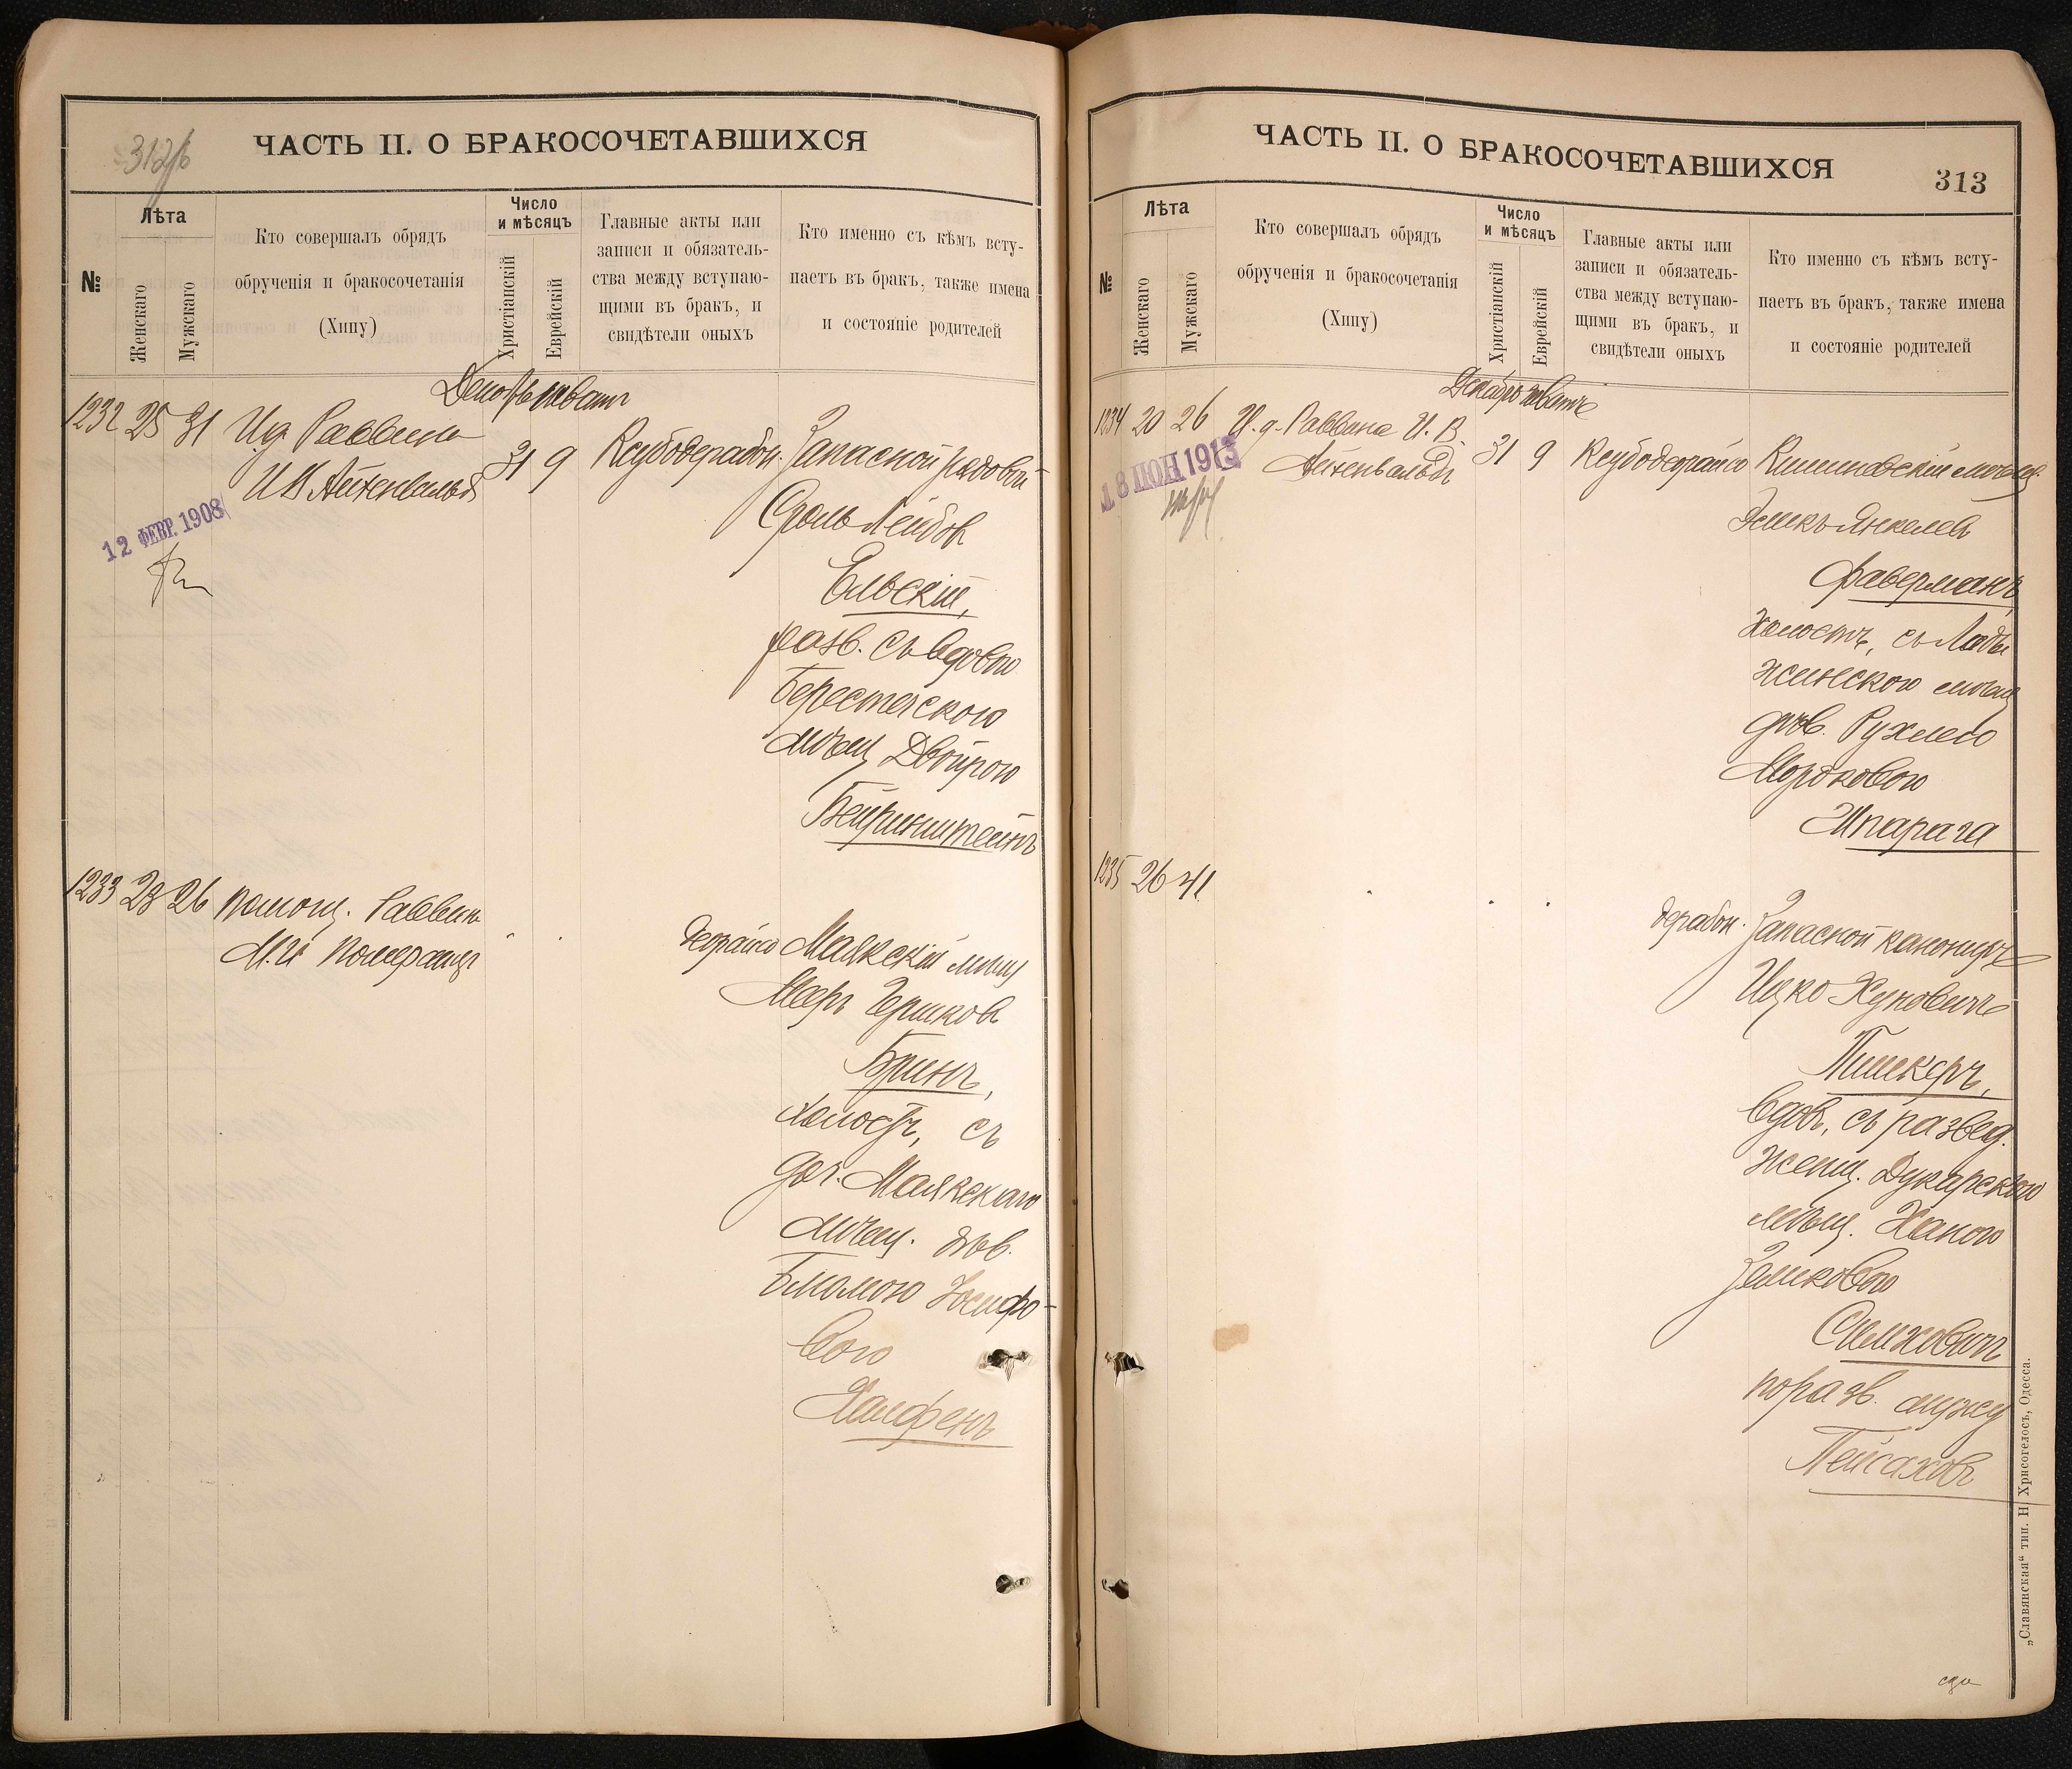 312/b
ЧАСТЬ II. О БРАКОСОЧЕТАВШИХСЯ
№
Лѣта
Женскаго
Мужскаго
Кто совершалъ обрядъ
обрученія и бракосочетанія
(Хипу)
Число
и мѣсяцъ
Христіанскій
Еврейскій
Главные акты или
записи и обязатель-
ства между вступаю-
щими въ бракъ, и
свидѣтели оныхъ
Кто именно съ кѣмъ всту-
паетъ въ бракъ, также имена
и состояніе родителей
1232 25 31 И.д. Раввина
И В Айхенвальдъ
31 9
Запасной рядовой
Сроль Лейбов
Ельскій,
разв. съ вдовою
Берестечскою
мѣщ Двойрою
12 ФЕВР. 1908
1233 23 26 Помощ. Раввина
М.И Померанцъ
Маякскій мѣщ
Меръ Гершков
Бринъ,
холостъ, съ
доч. Маякскаго
мѣщ. дѣв.
Блюмою Іосифо-
вою
Халфенъ
ЧАСТЬ II. О БРАКОСОЧЕТАВШИХСЯ
313
№
Лѣта
Женскаго
Мужскаго
Кто совершалъ обрядъ
обрученія и бракосочетанія
(Хипу)
Число
и мѣсяцъ
Христіанскій
Еврейскій
Главные акты или
записи и обязатель-
ства между вступаю-
щими въ бракъ, и
свидѣтели оныхъ
Кто именно съ кѣмъ всту-
паетъ въ бракъ, также имена
и состояніе родителей
Декабрь
1234 20 26 И.д. Раввина И. В.
Айхенвальдъ
31 9
Кишиневскій мѣщ.
Янкелев
Фаверманъ,
холостъ, съ Лады
жинскою мѣщ
дѣв. Рухлею
Мордковою
Шпарага
18 ІЮН 1913
1235 26 41
Запасной канониръ
Ицко Хуновичъ
Пинскеръ,
вдов., съ развед.
женщ.
мѣщ. Ханою
по разв. мужу
Пейсахов
„Славянская“ тип. Н. Хрисогелосъ, Одесса.